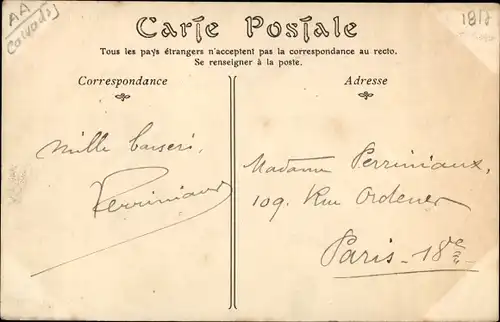 AA
Calvados
Carte Postale
Tous les pays étrangers n'acceptent pas la correspondance au recto.
Se renseigner à la poste.
Correspondance
Adresse
mille baisers,
Perriniaux
Madame Perriniaux,
109, Rue Ordener
Paris - 18e